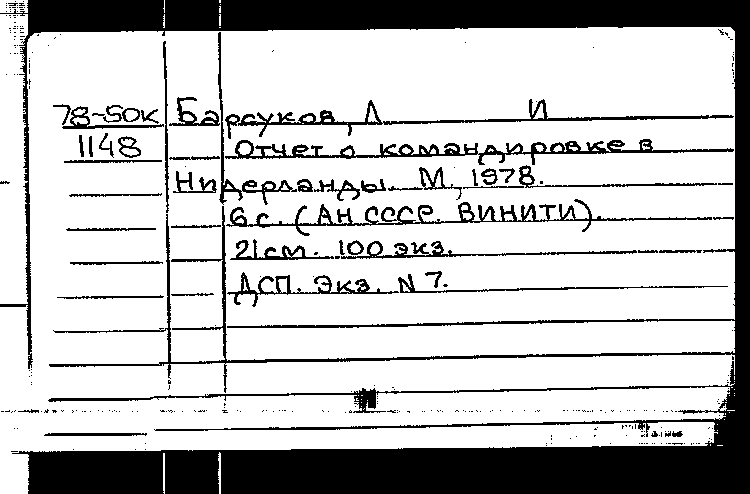 78-50к Барсуков, Л И
1148 Отчет о командировке в
Нидерланды. М., 1978.
6 с. (АН СССР. ВИНИТИ).
21 см. 100 экз.
ДСП. Экз. N 7.